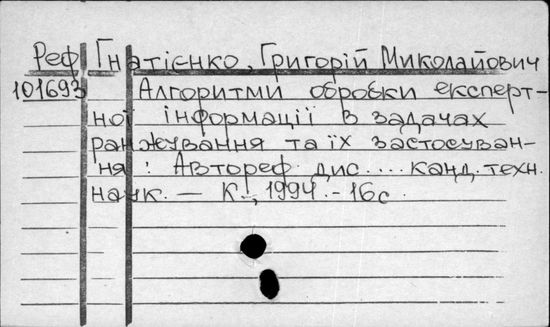 Реф Гнатієнко, Григорій Миколайович
101693 Алгоритми обробки експерт-
ної інформації в задачах
ранжування та їх застосуван-
ня : Автореф. дис.... канд. техн.
наук. — К., 1994. - 16с.